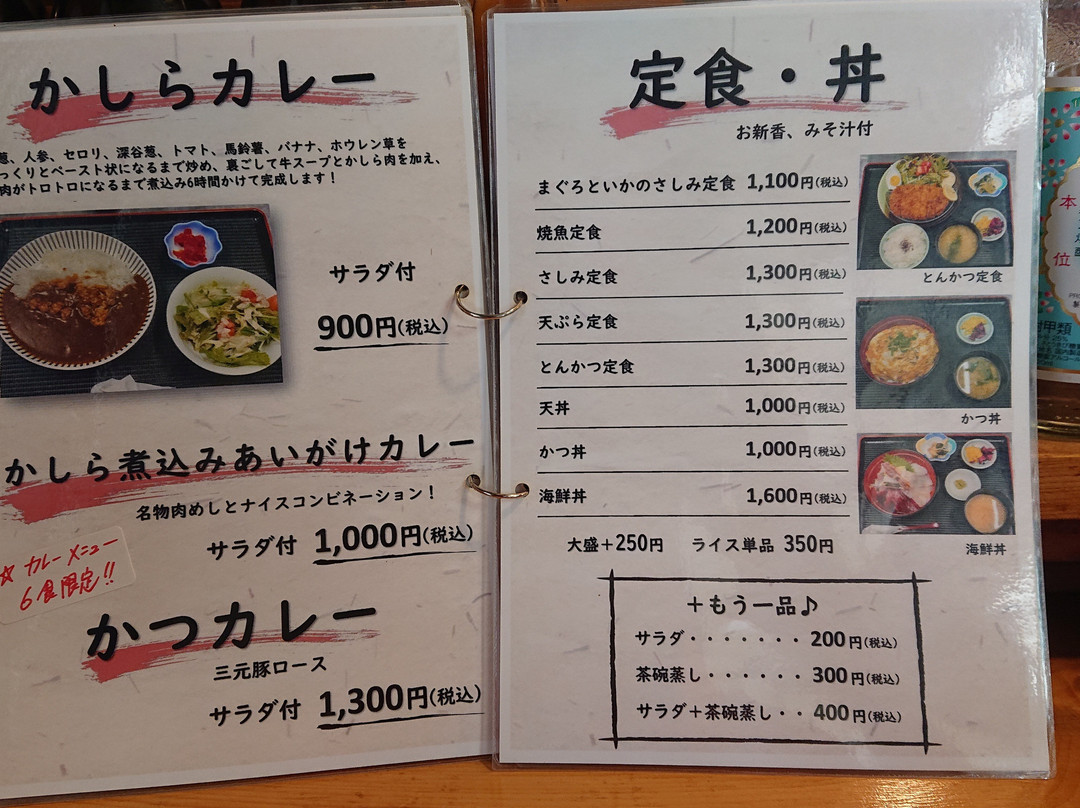 かしらカレー
葱、人参、セロリ、深谷葱、トマト、馬鈴薯、バナナ、ホウレン草を
っくりとペースト状になるまで炒め、裏ごして牛スープとかしら肉を加え、
肉がトロトロになるまで煮込み6時間かけて完成します！
サラダ付
900円(税込)
かしら煮込みあいがけカレー
名物肉めしとナイスコンビネーション！
サラダ付 1,000円(税込)
☆カレーメニュー
6食限定!!
かつカレー
三元豚ロース
サラダ付 1,300円(税込)
定食・丼
お新香、みそ汁付
まぐろといかのさしみ定食 1,100円(税込)
焼魚定食 1,200円(税込)
さしみ定食 1,300円(税込)
天ぷら定食 1,300円(税込)
とんかつ定食 1,300円(税込)
天丼 1,000円(税込)
かつ丼 1,000円(税込)
海鮮丼 1,600円(税込)
とんかつ定食
かつ丼
海鮮丼
大盛＋250円 ライス単品 350円
＋もう一品♪
サラダ・・・・・・・200円(税込)
茶碗蒸し・・・・・・300円(税込)
サラダ＋茶碗蒸し・・400円(税込)
本
位
甲類